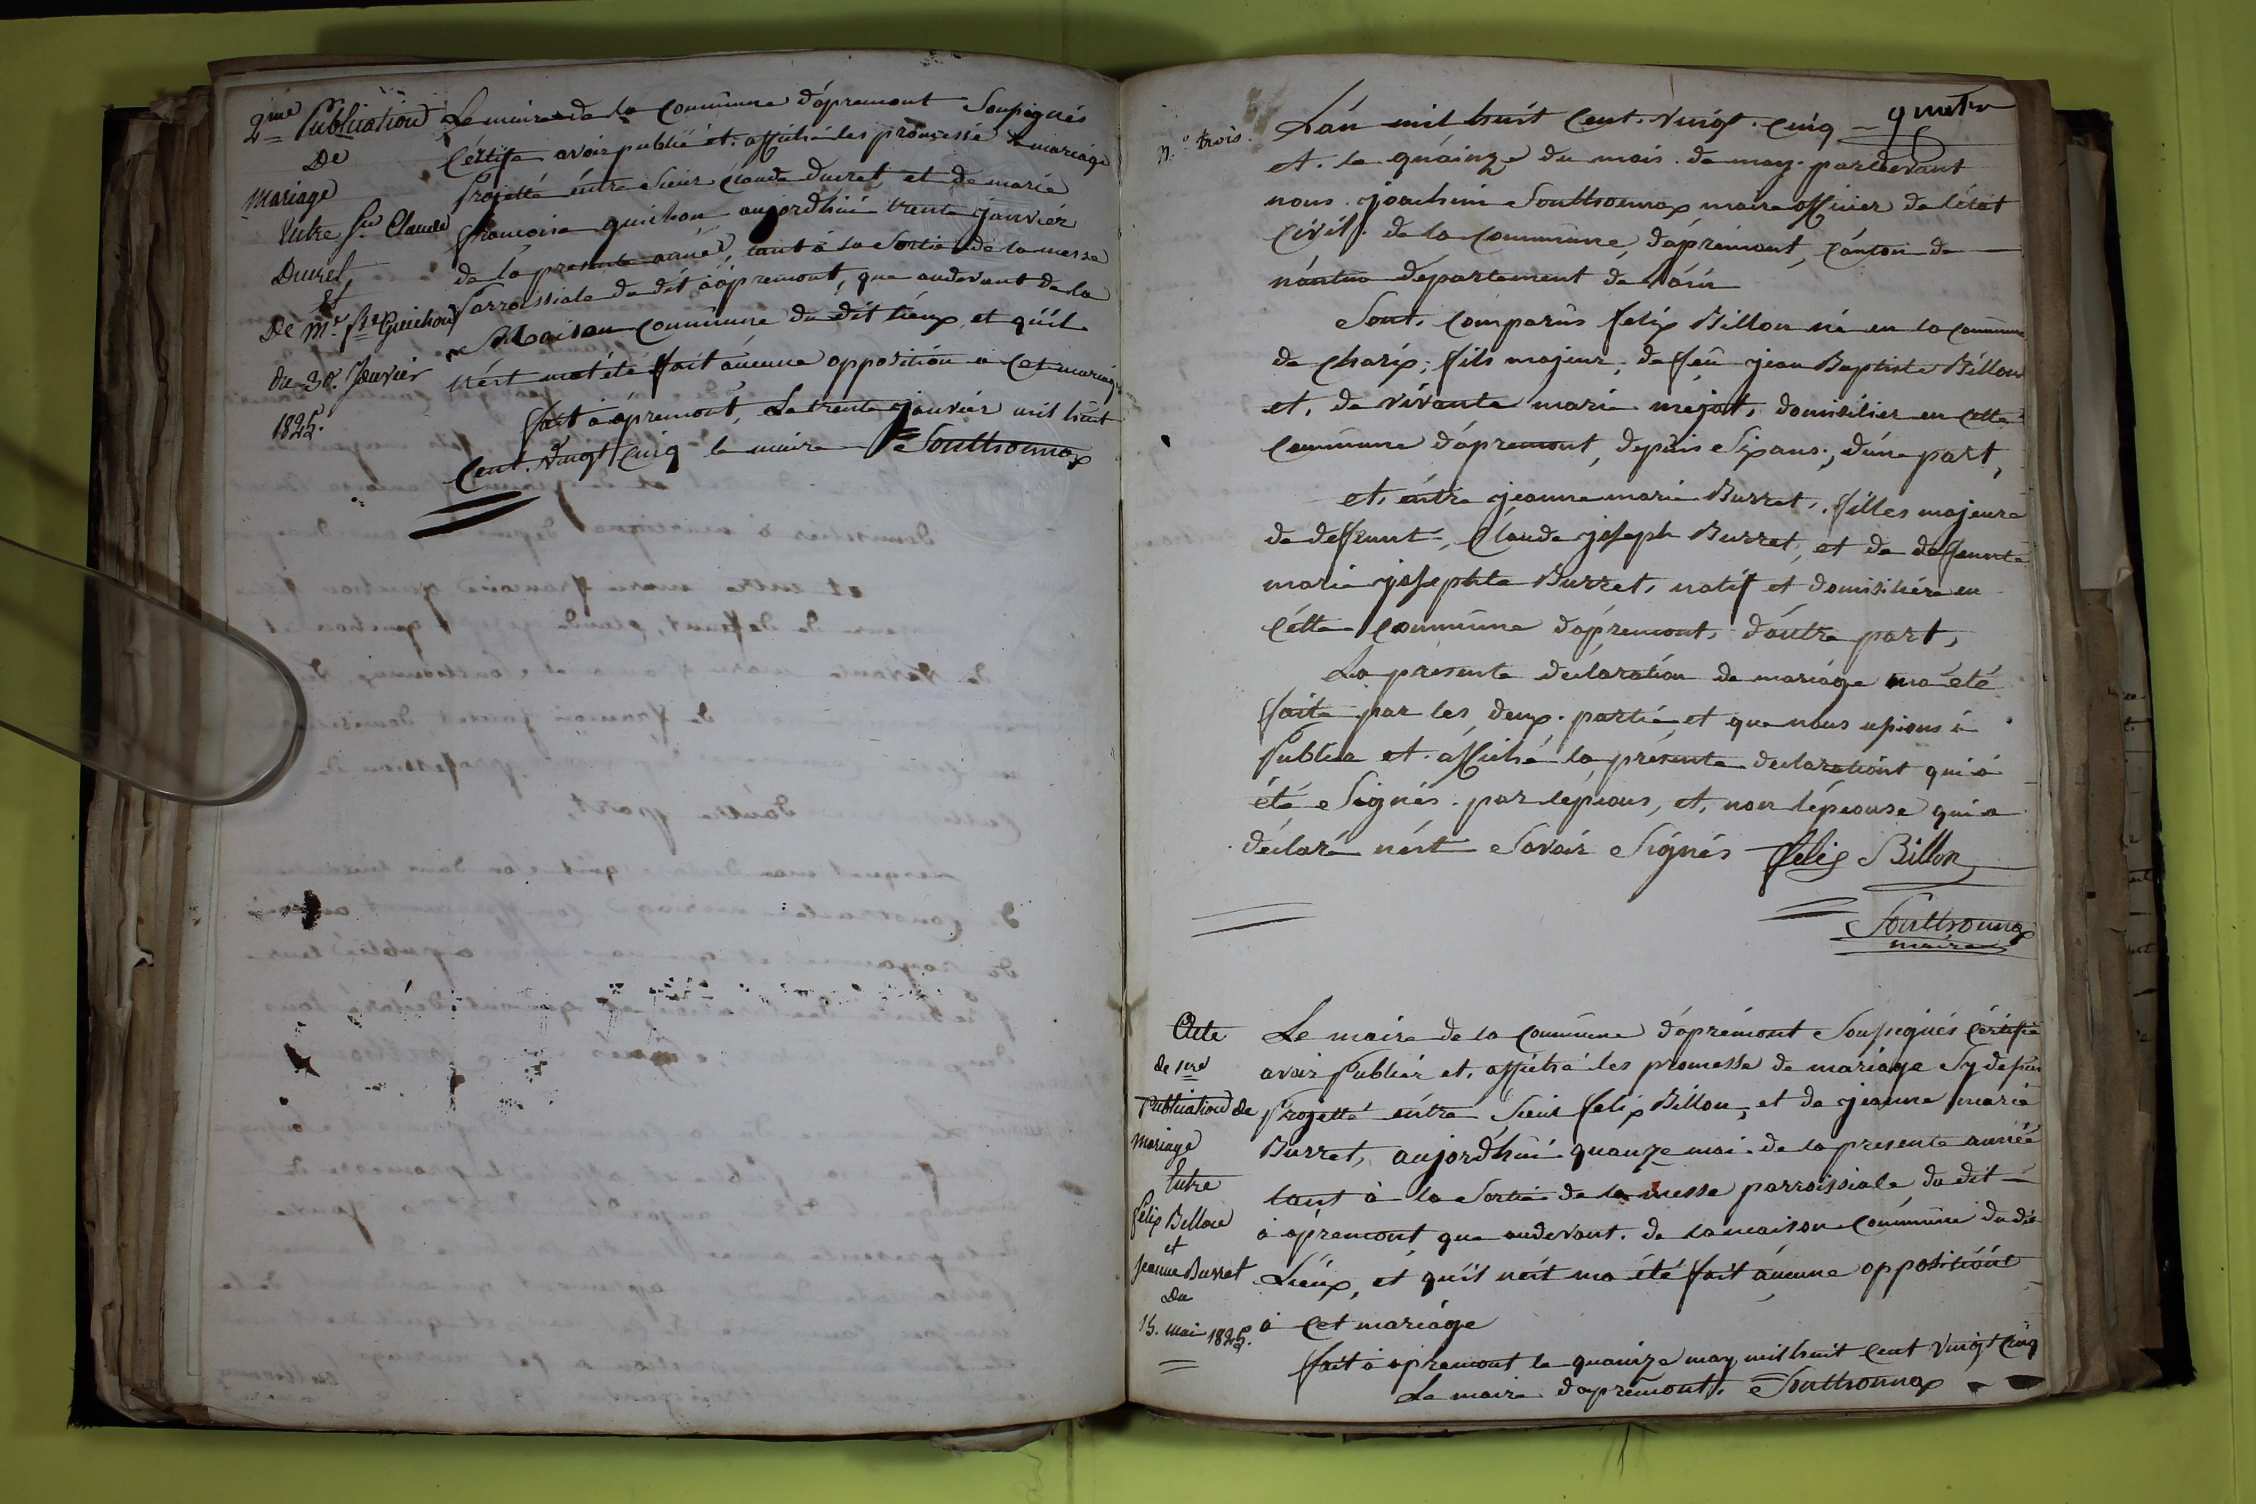 2me Publication
De
Mariage
Entre Sr Claude
Duret
et
De Me fse Guichon
du 30. Janvier
1825.
Le maire de la commune d'apremont Soupignés
Cértife avoir publié et. affiché les promesse de mariage
Projetté éntre Sieur Claude Duret et de marie
francoise guichon aujordhui trente janviér
de la presente anné, tant à la Sortie de la messe
Parroissiale du dit à apremont, que audevant de la
Maison commune du dit lieux, et qu'il
nést mat été fait aucune opposition a Cet mariage
fait à apremont, Le trente janviér mil huit
Cent. Vingt Cinq le maire Soulthonnax
N.° trois.
L'an mil huit Cent. Vingt. Cinq
et. le quainze du mois. de may. pardevant
nous. joachim Soulthonnax maire officier de l'état
Civil. de la commune d'apremont, canton de
nantua département de l'ain
Sont, comparus felix Billon né en la commune
de charix, fils majeur, de feu jean Baptiste Billon
et, de vivante marie mejat, domisilier en cette
Commune d'apremont, depuis Six ans, d'une part,
et, éntre jeanne marie Burret, filles majeure
de deffunt, Claude joseph Burret, et de deffunte
marie josephte Burret, natif et domisiliére en
cétte commune d'apremont, d'autre part,
La présente déclaration de mariage ma été
faite par les deux. partie et que nous upions à
Publier et. affiché la présente declarationt qui à
été Signés. par lépious, et, non l'épiouse qui a
déclaré nést Savoir Signés felix Billon
Soulthonnax
maire
Acte
de 1ere
Publication de
Mariage
Entre
félix Billon
et
Jeanne Burret
Du
15. mai 1825.
Le maire de la commune d'apremont Soupignés Cértifie
avoir Publiér et. affiché les promesse de mariage
Projetté éntre Sieur felix Billon, et de jeanne marie
Burret, aujordhui quanze mai de la presente année
tant à la Sortie de la messe parroissiale du dit
à apremont, que audevant. de la maison Commune du dit
Lieux, et qu'il nést ma été fait aucune oppositiont
à Cet mariage
fait à apremont le quainze may mil huit Cent Vingt Cinq
Le maire d'apremont, Soulthonnax